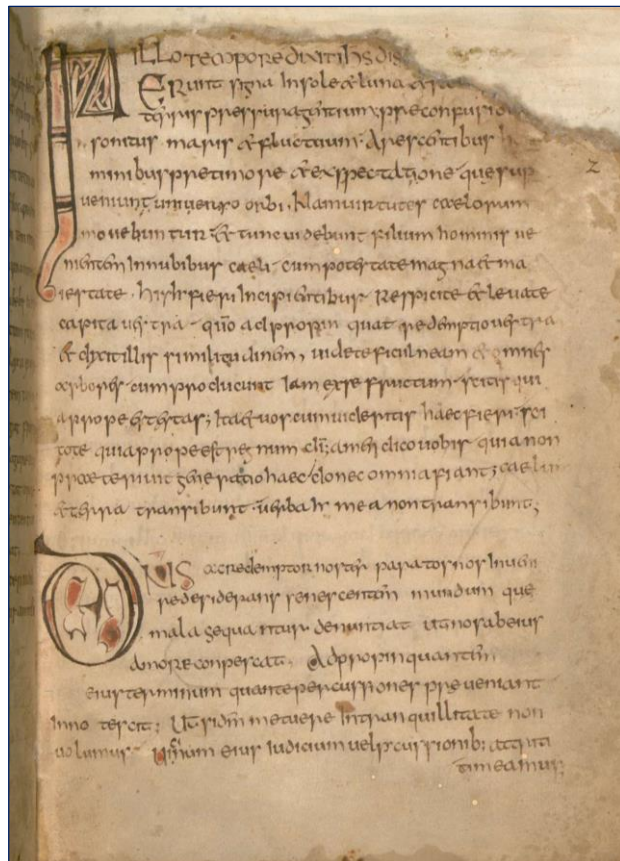 IN ILLO TEMPORE DIXIT IHS DIS
ERunt signa in sole & luna &
terris pressura gentium pre confusio
sonitus maris & fluctuum. Arescentibus h
minibus pre timore & exspectatione que sup
uenient uniuerso orbi. Nam uirtutes caelorum
mouebuntur. & tunc uidebunt filium hominis ue
nientem in nubibus caeli. cum potestate magna & ma
iestate. his fieri incipientibus Respicite & leuate
capita uestra. qūo adpropinquat redemptio uestra
& dixit illis similitudinem, uidete ficulneam & omnes
arbores. cum producunt iam ex se fructum. scitis qui
a prope est estas; Ita & uos cum uideritis haec fieri. sci
tote quia prope est regnum dī; amen dico uobis quia non
praeteriunt generatio haec. donec omnia fiant; caelum
& terra transibunt. uerba h mea non transibunt;
DNS ac redemptor noster paratos nos inuen
re desiderans senescentem mundum que
mala sequantur. denuntiat ut nos ab eius
amore conpescat. Adpropinquantem
eius terminum quante percussiones preueniant
innotescit; Ut si dm metuere in tranquillitate non
uolumus. iudicium uel percussionib;
timeamus;
2